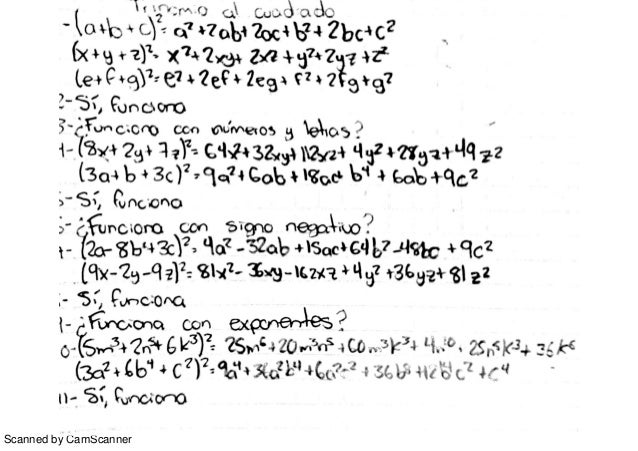 Trinomio al cuadrado
-(a+b+c)²= a²+2ab+2ac+b²+2bc+c²
(x+y+z)²= x²+2xy+ 2xz+y²+2yz+z²
(e+f+g)²=e²+2ef+2eg+f²+2fg+g²
2-Sí, funciona
3-¿Funciona con números y letras?
4-(8x+2y+7z)²=64x²+32xy+112xz+4y²+28yz+49z²
(3a+b+3c)²=9a²+6ab+18ac+b⁴+6ab+9c²
5-Sí, funciona
¿Funciona con signo negativo?
(2a-8b+3c)²=4a²-32ab+15ac+64b²-48bc+9c²
(9x-2y-9z)²=81x²-36xy-162xz+4y²+36yz+81z²
- Sí, funciona
¿Funciona con exponentes?
(5m³+2n⁵+6k³)²=25m⁶+20m³n⁵+60m³k³+4n¹⁰+25n⁵k³+36k⁶
(3a²+6b⁴+c²)²=9a⁴+36a²b⁴+6a²c²+36b⁸+12b⁴c²+c⁴
11- Sí, funciona
Scanned by CamScanner